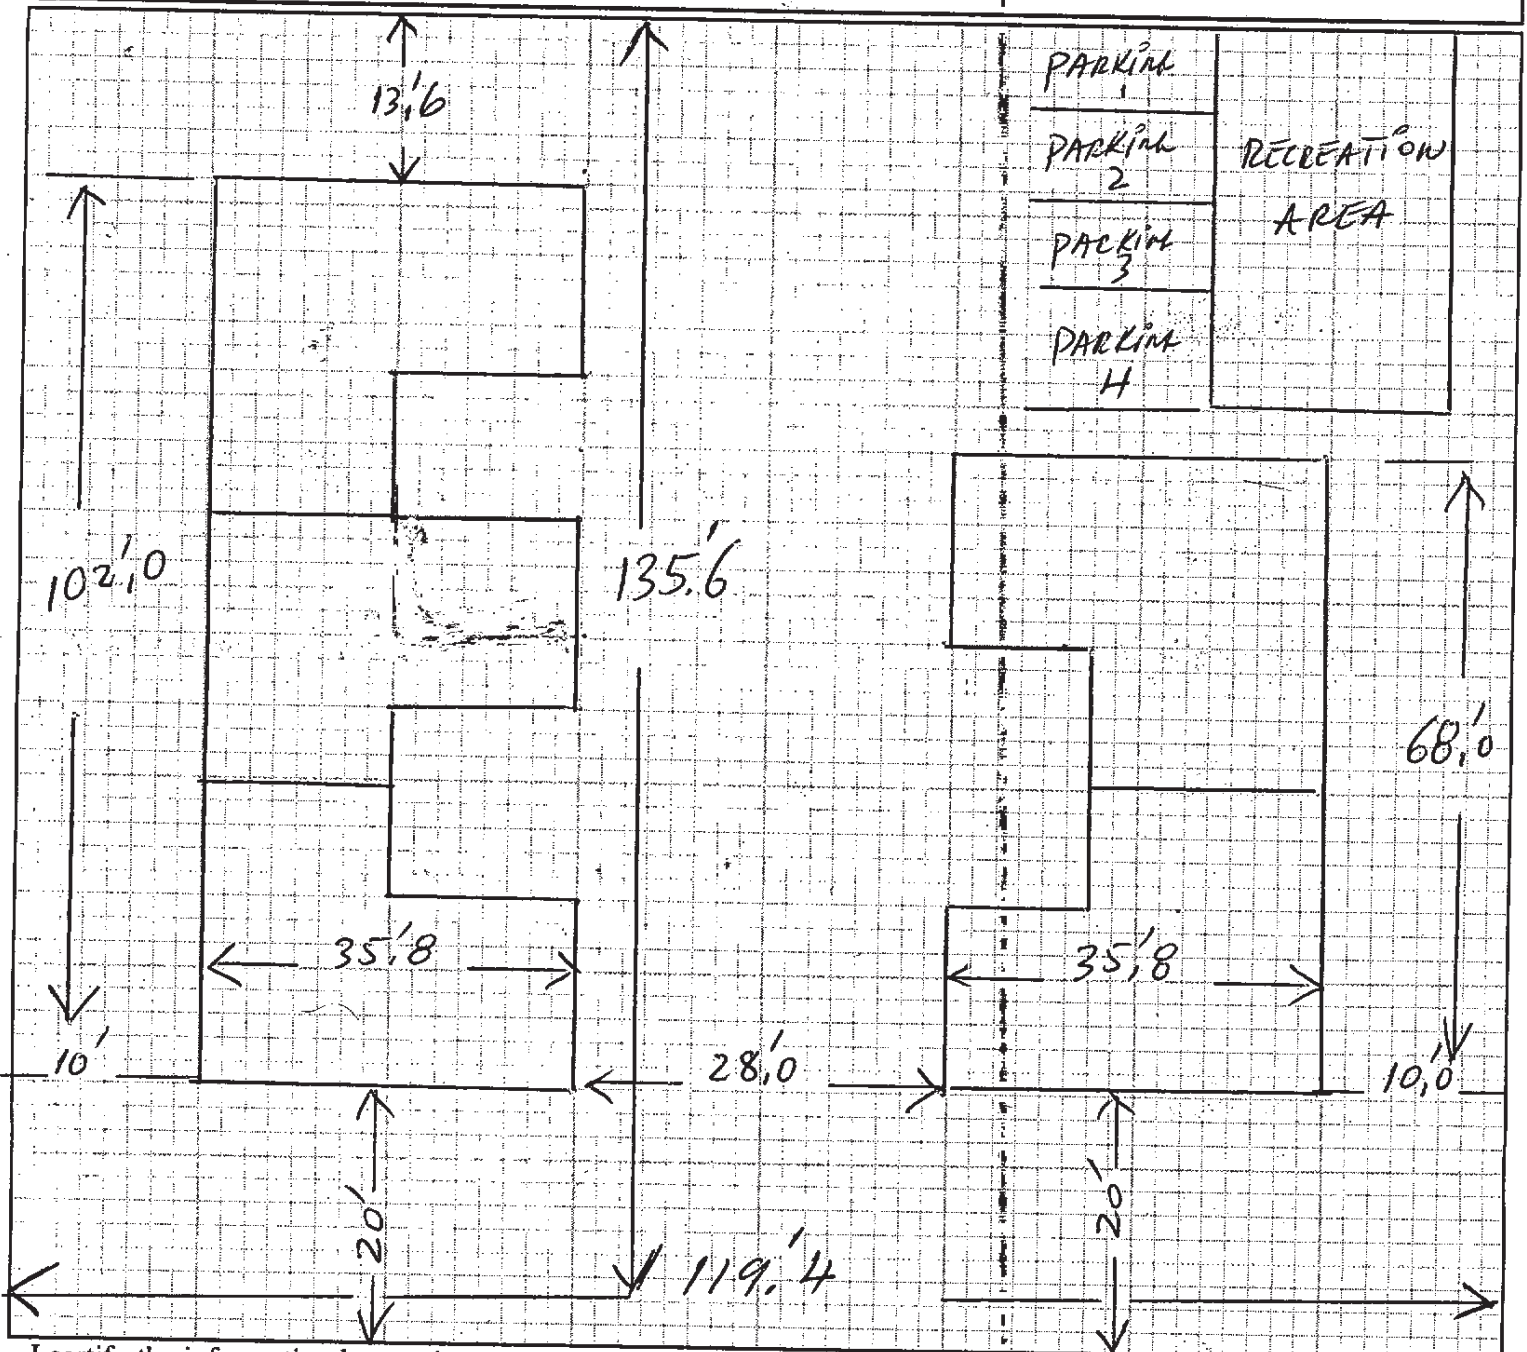 13,'6
PARKING
1
PARKING
2
PACKING
3
PARKING
4
RECREATION
AREA
102',0
135.'6
68,'0
35.'8
35,'8
10'
28,'0
10,'0
20'
20'
119.'4